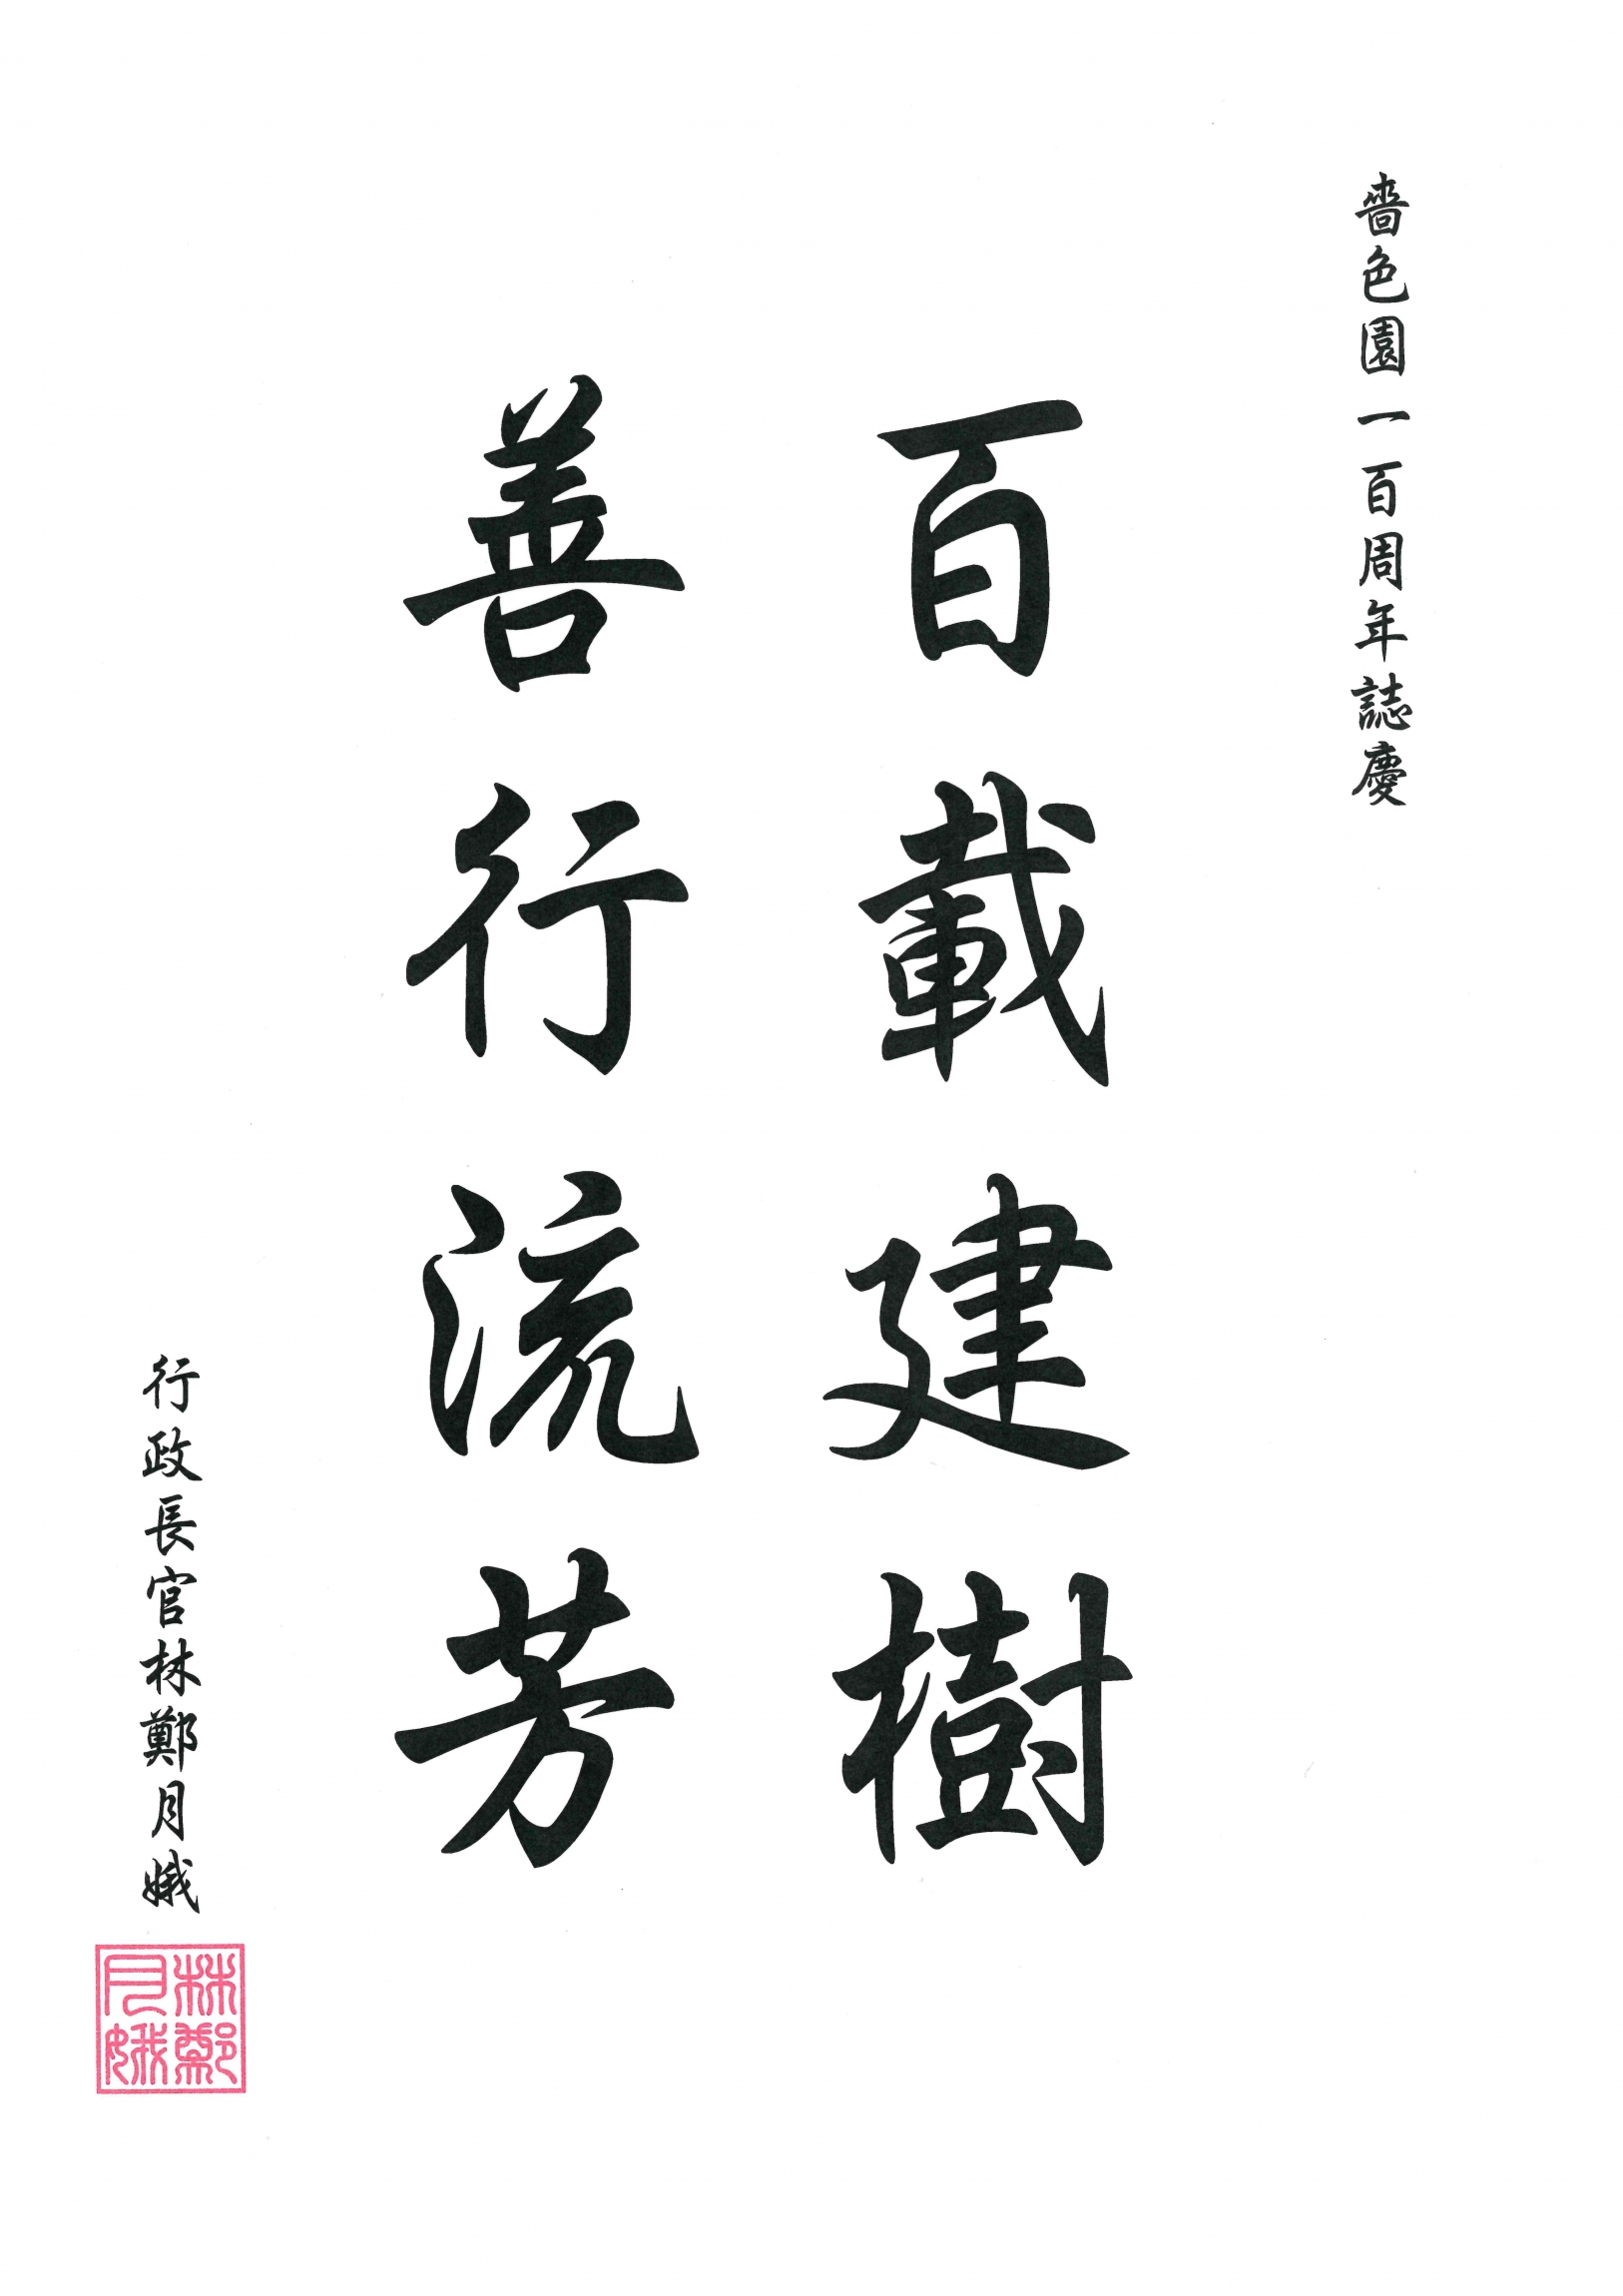 嗇色園一百周年誌慶
百載建樹
善行流芳
行政長官林鄭月娥
林鄭
月娥